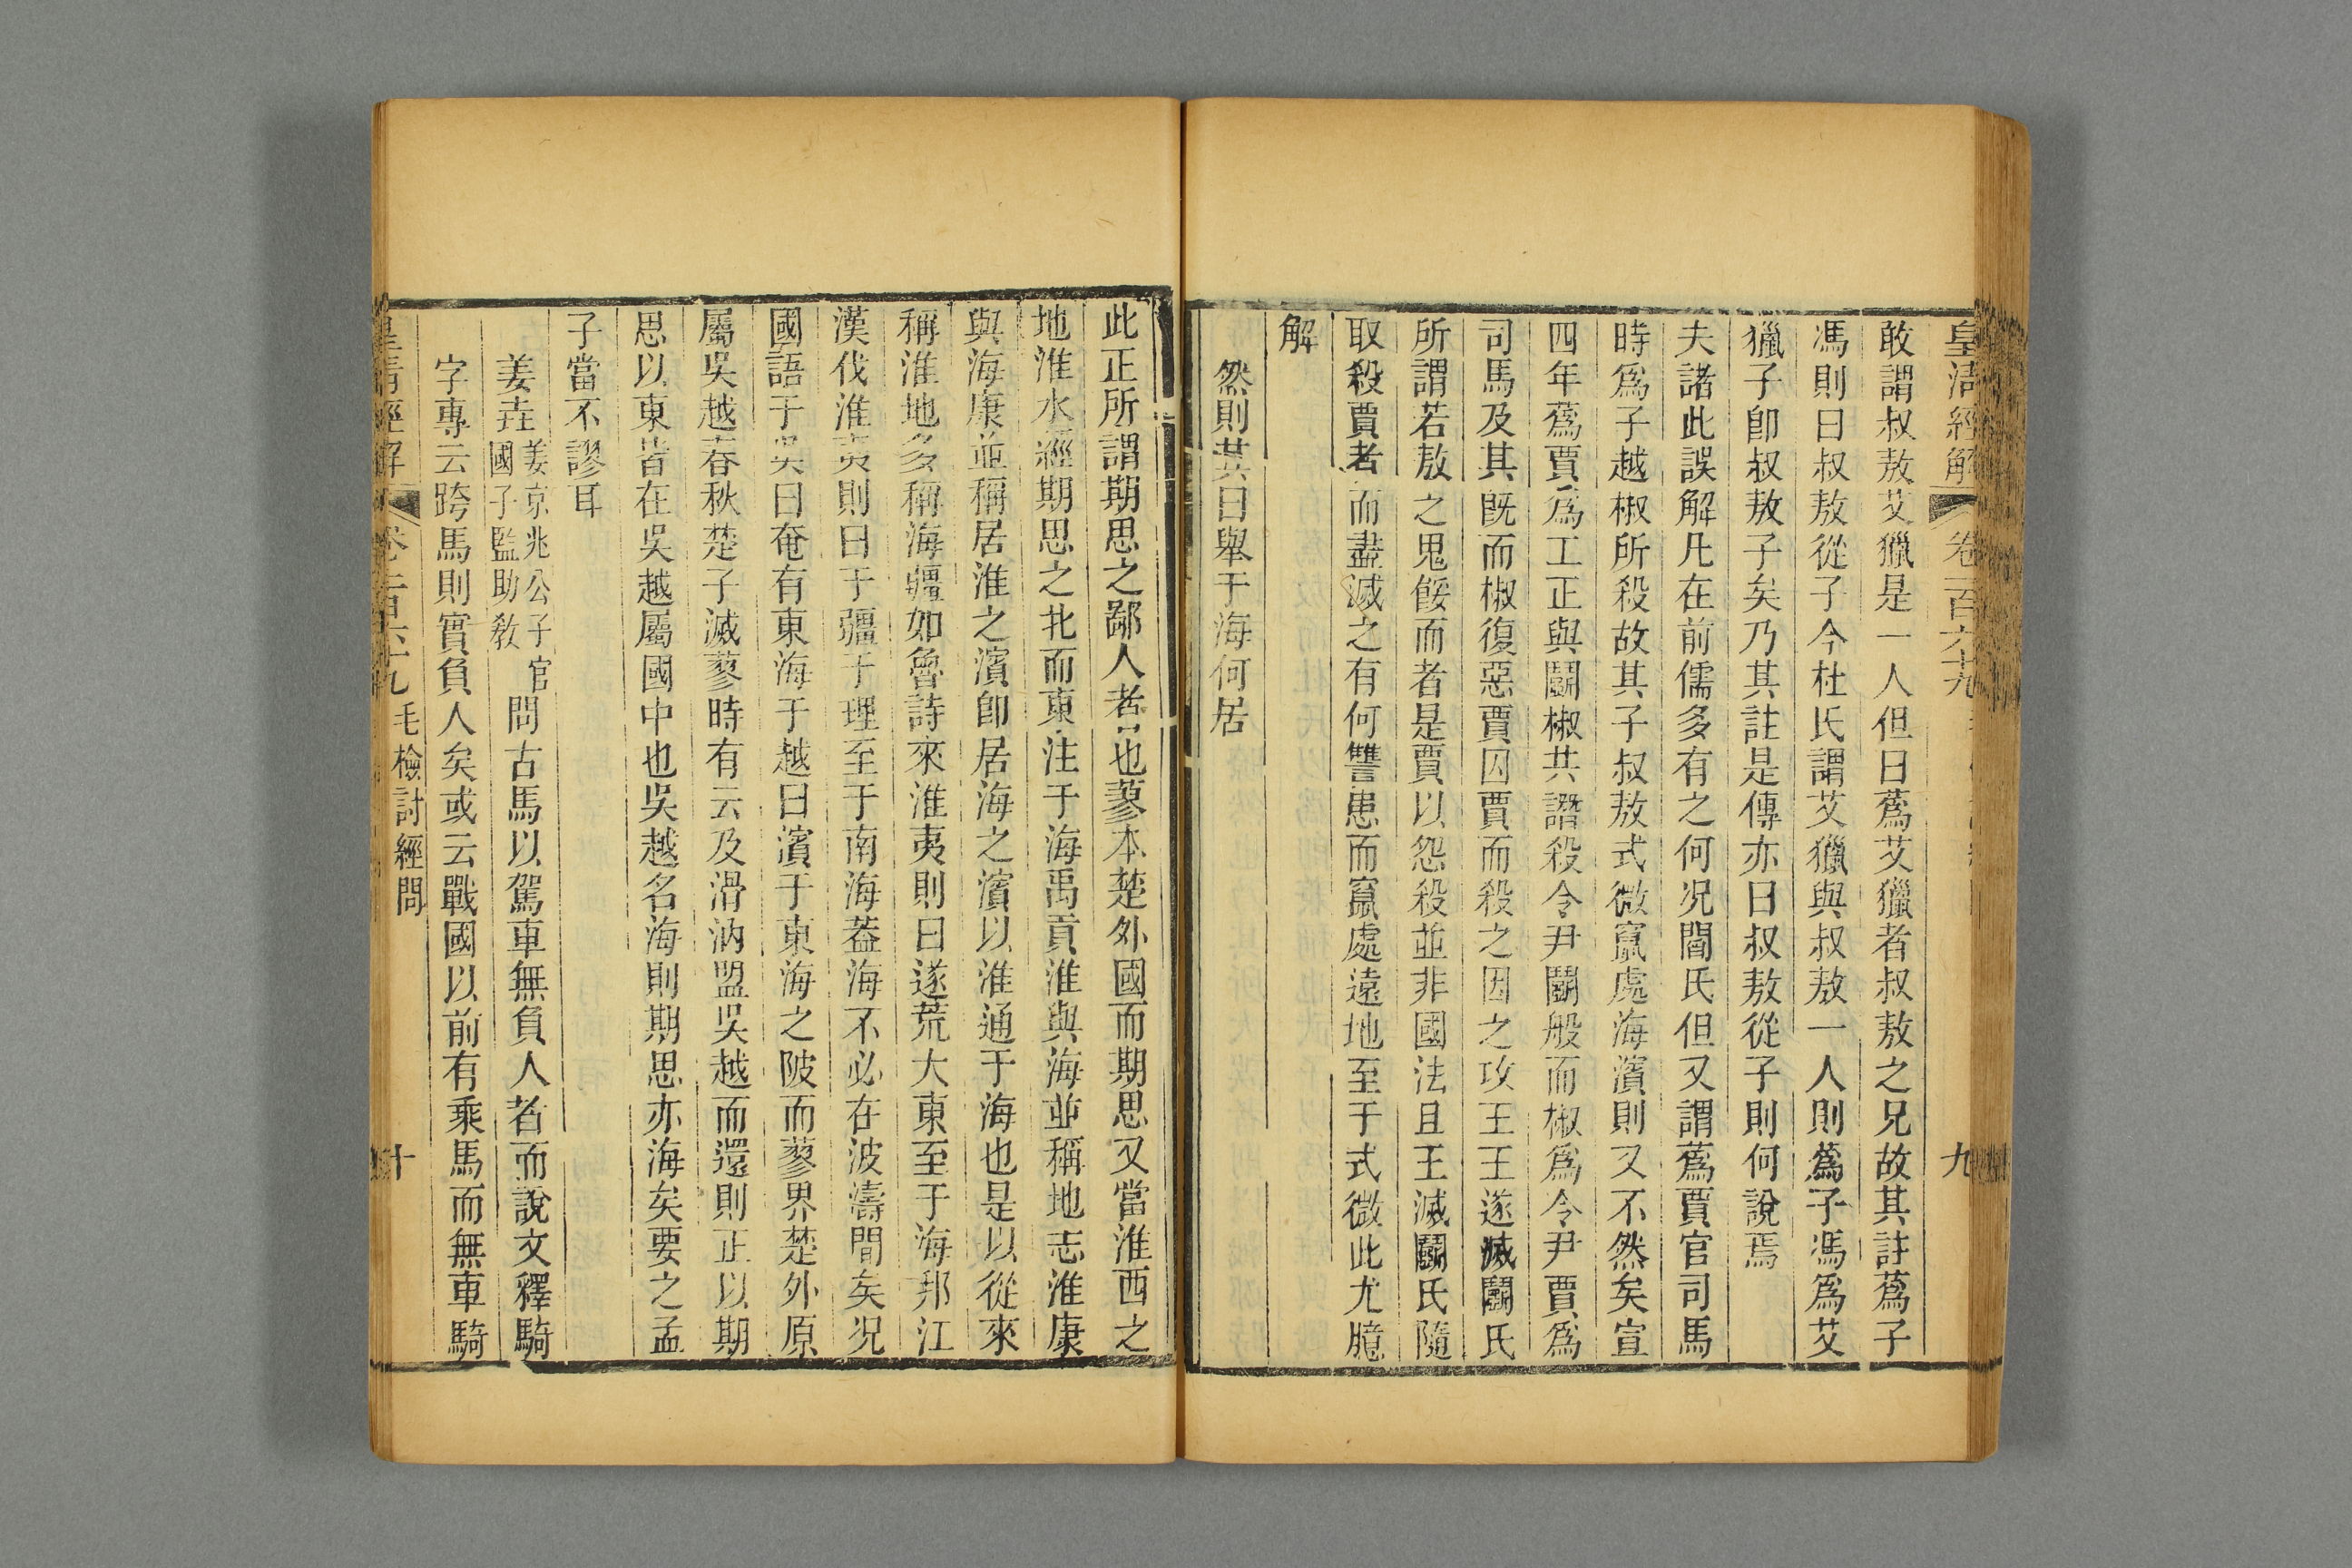 皇清經解 卷一百六十九 九
敢謂叔敖艾獵是一人但日蒍艾獵者叔敖之兄故其註蒍子
馮則曰叔敖從子今杜氏謂艾獵與叔敖一人則蒍子馮爲艾
獵子卽叔敖子矣乃其註是傳亦曰叔敖從子則何說焉
夫諸此誤解凡在前儒多有之何况閻氏但又謂蒍賈官司馬
時爲子越椒所殺故其子叔敖式微竄處海濱則又不然矣宣
四年蒍賈爲工正與鬭椒共譖殺令尹鬭般而椒爲令尹賈爲
司馬及其旣而椒復惡賈囚賈而殺之因之攻王王遂滅鬭氏
所謂若敖之鬼餒而者是賈以怨殺並非國法且王滅鬭氏隨
取殺賈者而盡滅之有何讐患而竄處遠地至于式微此尤臆
解
然則其曰舉于海何居
此正所謂期思之鄙人者也蓼本楚外國而期思又當淮西之
地淮水經期思之北而東注于海禹貢淮與海並稱地志淮康
與海康並稱居淮之濱卽居海之濱以淮通于海也是以從來
稱淮地多稱海疆如魯詩來淮夷則曰遂荒大東至于海邦江
漢伐淮夷則曰于疆于理至于南海葢海不必在波濤間矣况
國語于吳曰奄有東海于越曰濱于東海之陂而蓼界楚外原
屬吳越春秋楚子滅蓼時有云及滑汭盟吳越而還則正以期
思以東皆在吳越屬國中也吳越名海則期思亦海矣要之孟
子當不謬耳
姜垚姜京兆公子官國子監助敎問古馬以駕車無負人者而說文釋騎
字專云跨馬則實負人矣或云戰國以前有乘馬而無車騎
皇清經解 卷一百六十九 毛檢討經問 十